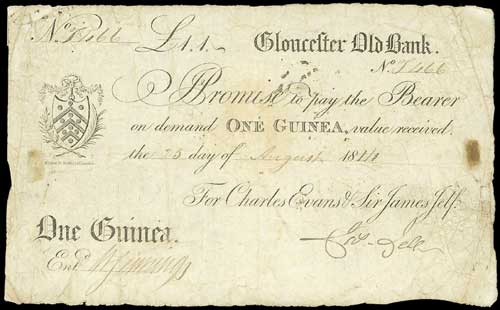 No. £1.1.~ Gloucester Old Bank.
No.
I Promise to pay the Bearer
on demand ONE GUINEA, value received.
the 25 day of August 1814
For Charles Evans & Sir James Jelf.
One Guinea.
Entd. Jennings